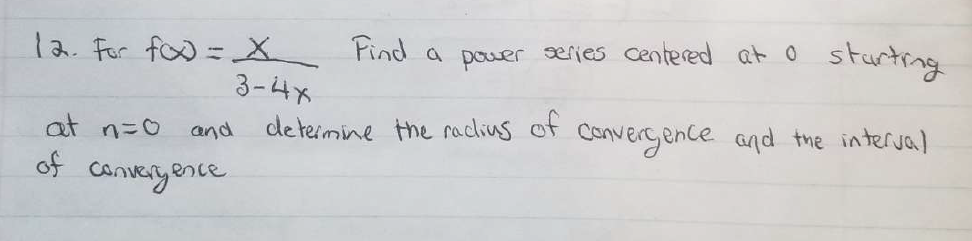 12. For f(x) = x/(3-4x) Find a power series centered at 0 starting
at n=0 and determine the radius of convergence and the interval
of convergence